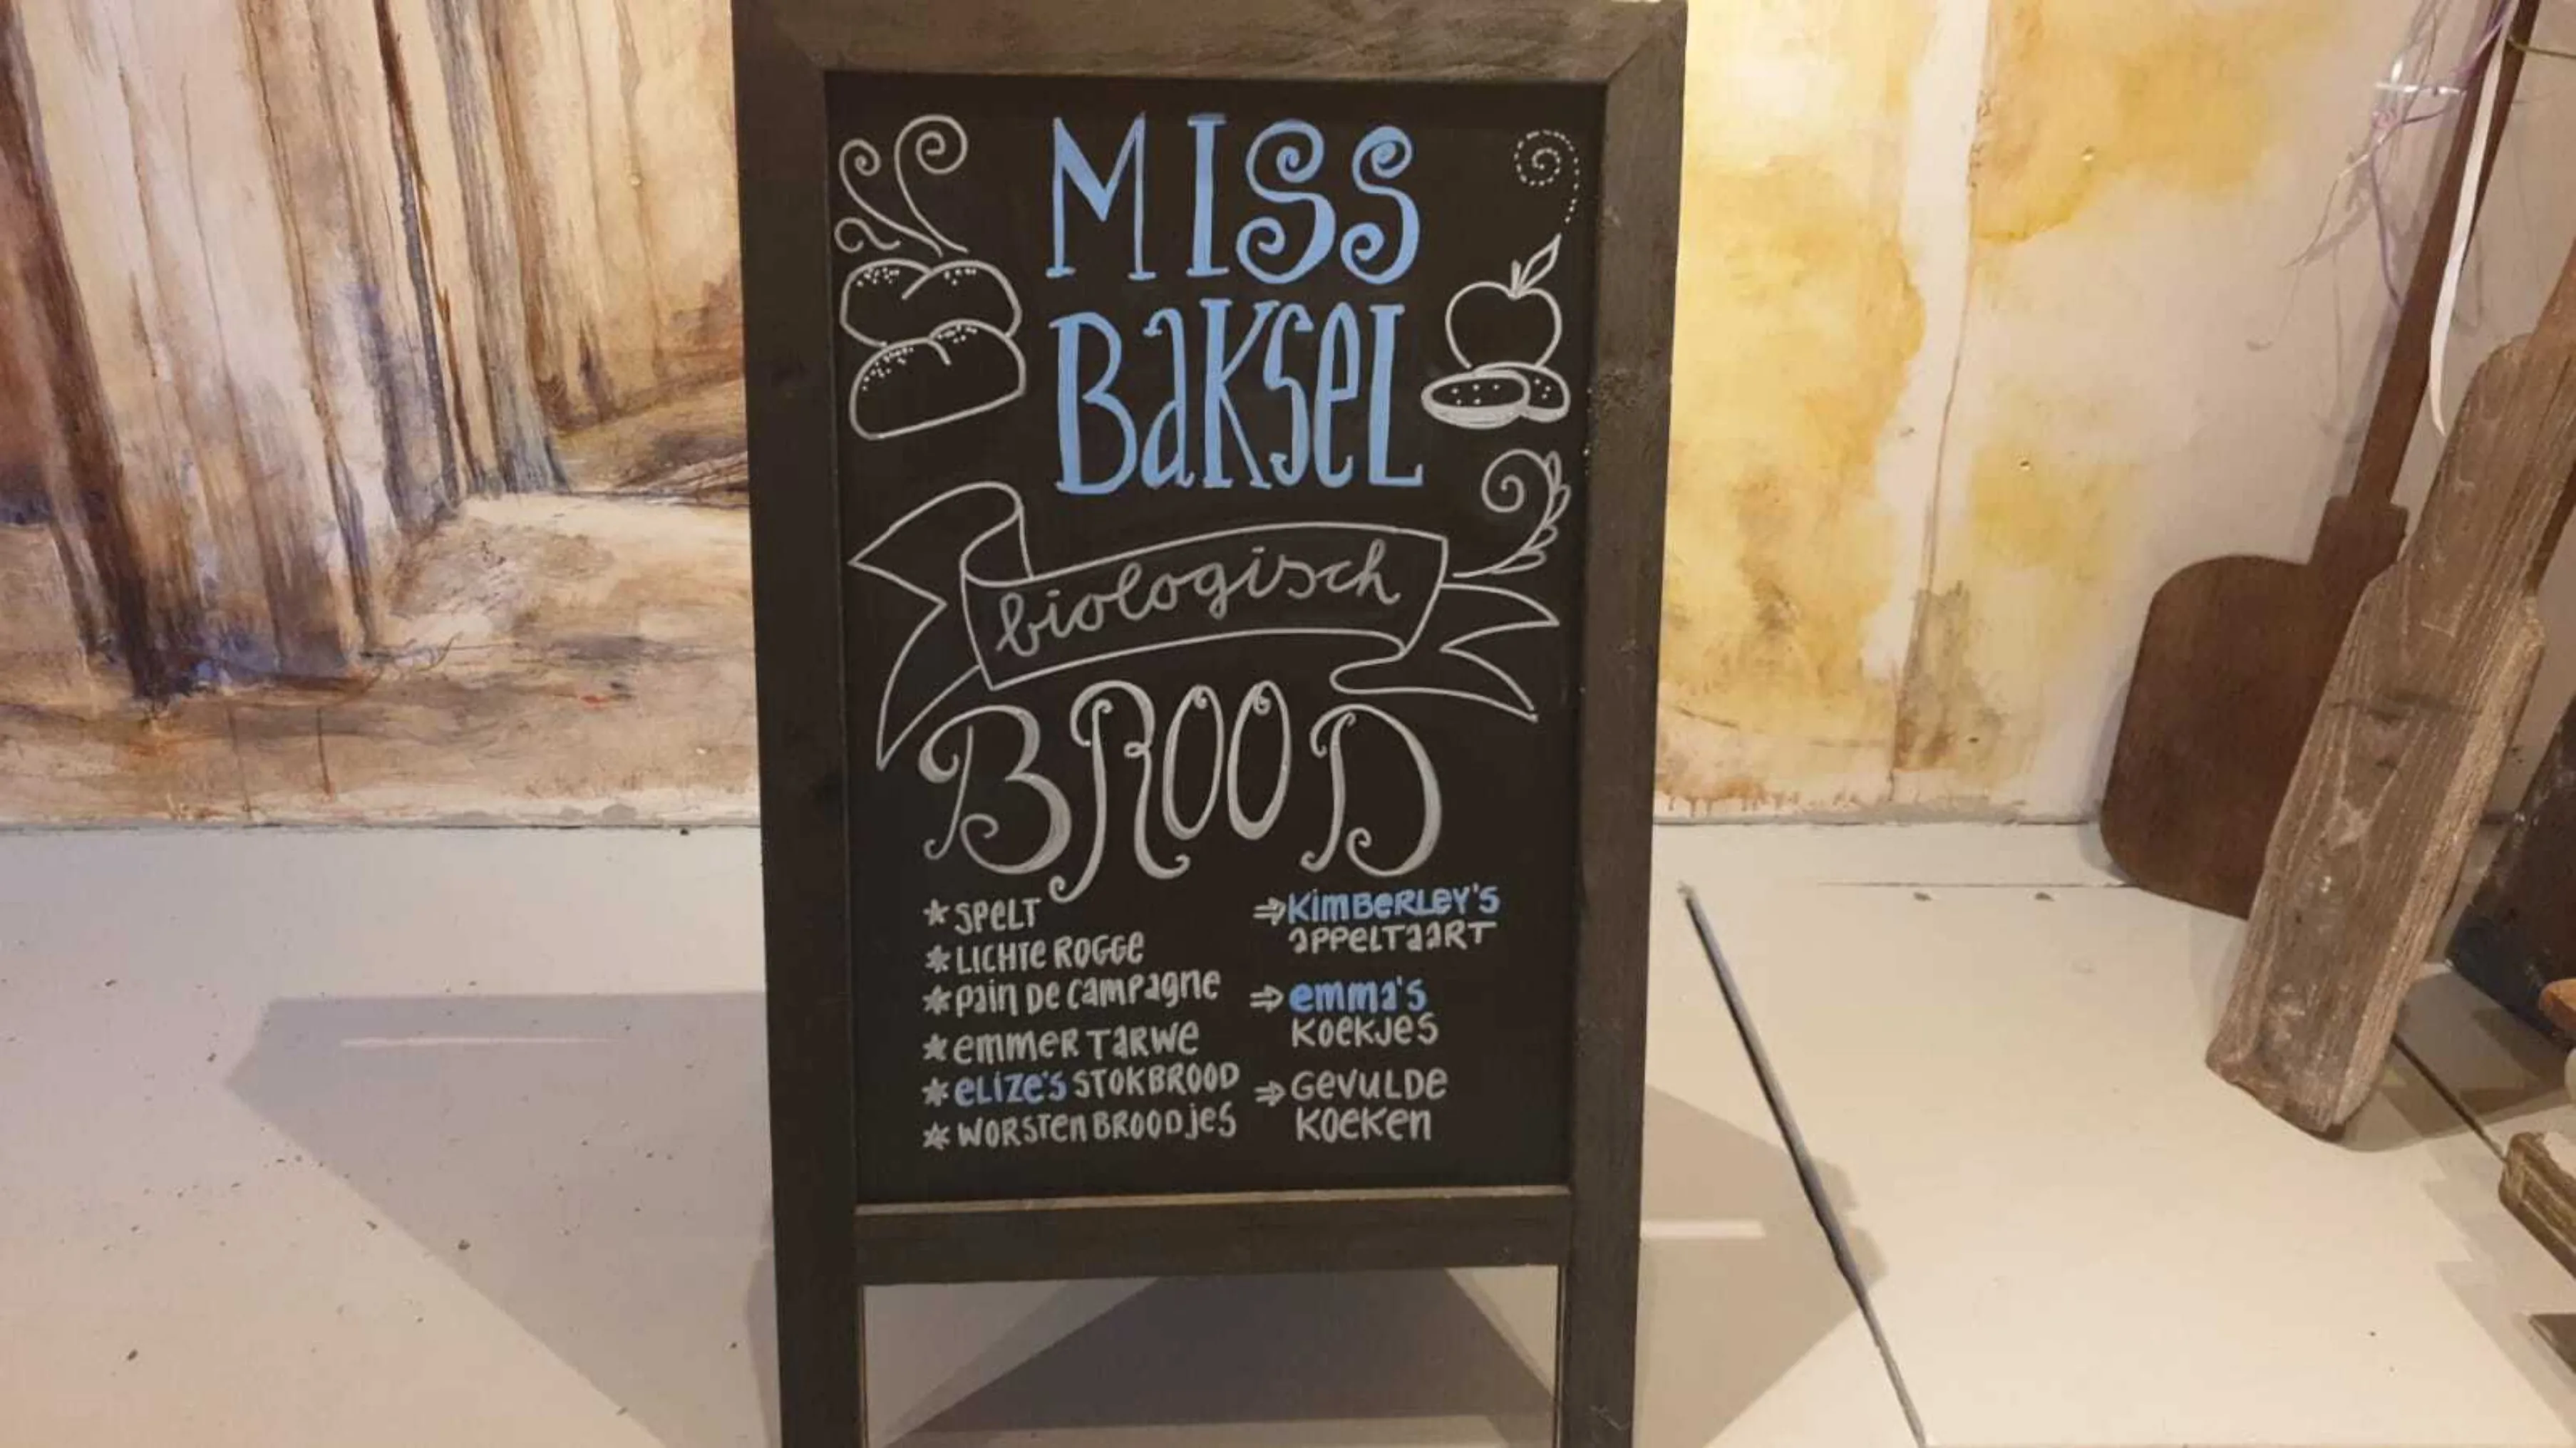 MISS
BAKSEL
biologisch
BROOD
* SPELT
* LICHTE ROGGE
* PAIN DE CAMPAGNE
* EMMER TARWE
* ELIZE'S STOKBROOD
* WORSTENBROODJES
⇒ KIMBERLEY'S
APPELTAART
⇒ EMMA'S
KOEKJES
⇒ GEVULDE
KOEKEN